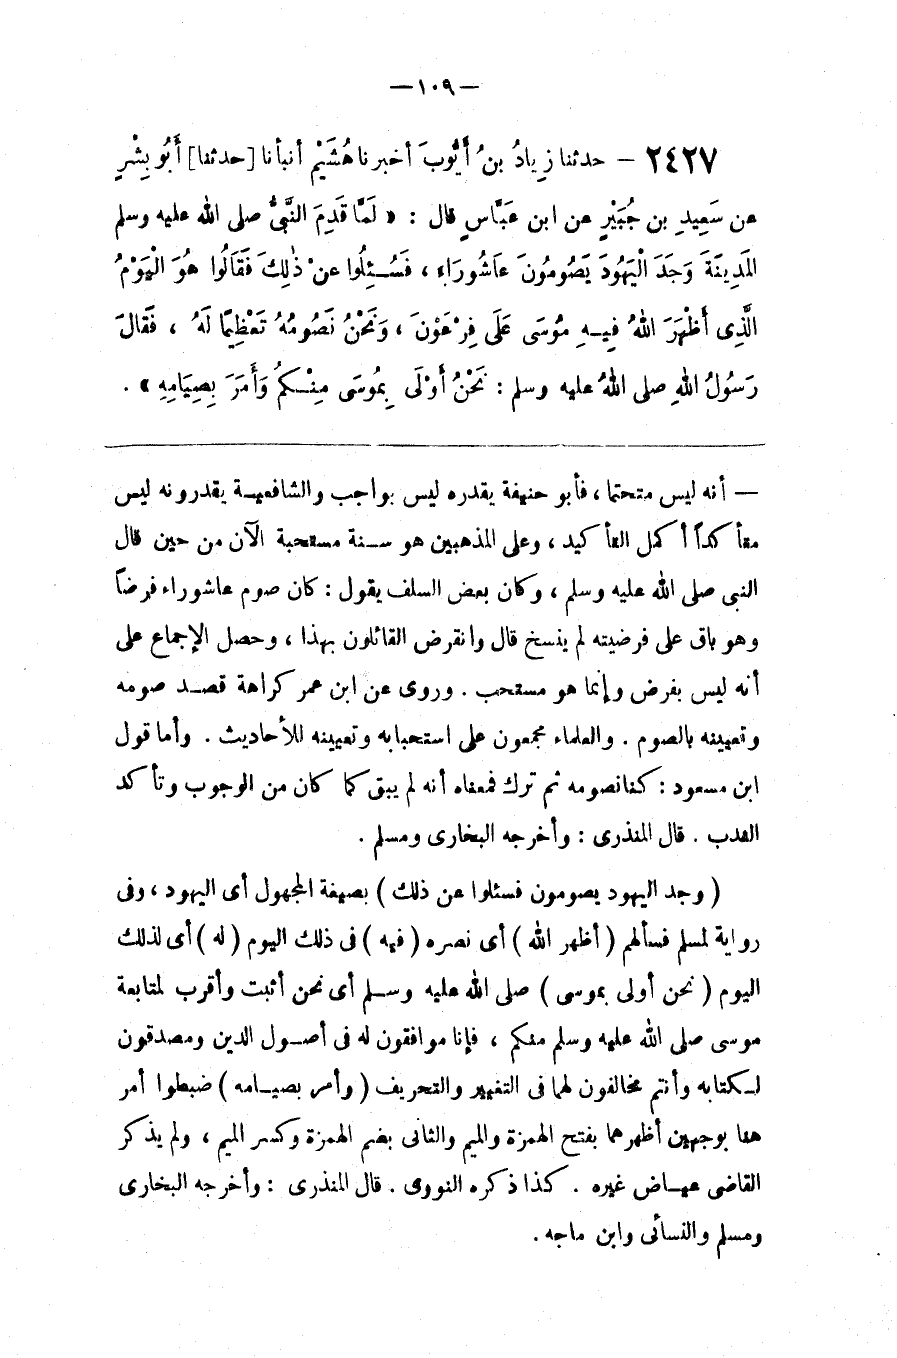 —١٠٩—
٢٤٢٧ — حدثنا زِيادُ بنُ أَيُّوبَ أخبرنا هُشَيْمٌ أنبأنا [حدثنا] أَبُو بِشْرٍ
عن سَعِيدِ بن جُبَيْرٍ عن ابن عَبَّاسٍ قال : « لَمَّا قَدِمَ النَّبىُّ صلى الله عليه وسلم
المَدِينَةَ وَجَدَ الْيَهُودَ يَصُومُونَ عَاشُورَاءَ ، فَسُئِلُوا عنْ ذٰلِكَ فَقَالُوا هُوَ الْيَوْمُ
الَّذِى أَظْهَرَ اللهُ فِيهِ مُوسَى عَلَى فِرْعَوْنَ ، وَنَحْنُ نَصُومُهُ تَعْظِيمًا لَهُ ، فَقَالَ
رَسُولُ اللهِ صلى اللهُ عليه وسلم : نَحْنُ أَوْلَى بِمُوسَى مِنْكُمْ وَأَمَرَ بِصِيَامِهِ » .
— أنه ليس متحتما ، فأبو حنيفة يقدره ليس بواجب والشافعية يقدرونه ليس
متأكداً أكمل التأكيد ، وعلى المذهبين هو سنة مستحبة الآن من حين قال
النبى صلى الله عليه وسلم ، وكان بعض السلف يقول : كان صوم عاشوراء فرضاً
وهو باق على فرضيته لم ينسخ قال وانقرض القائلون بهذا ، وحصل الإجماع على
أنه ليس بفرض وإنما هو مستحب . وروى عن ابن عمر كراهة قصد صومه
وتعيينه بالصوم . والعلماء مجمعون على استحبابه وتعيينه للأحاديث . وأما قول
ابن مسعود : كنا نصومه ثم ترك فمعناه أنه لم يبق كما كان من الوجوب وتأكد
الندب . قال المنذرى : وأخرجه البخارى ومسلم .
( وجد اليهود يصومون فسئلوا عن ذلك ) بصيغة المجهول أى اليهود ، وفى
رواية لمسلم فسألهم ( أظهر الله ) أى نصره ( فيه ) فى ذلك اليوم ( له ) أى لذلك
اليوم ( نحن أولى بموسى ) صلى الله عليه وسلم أى نحن أثبت وأقرب لمتابعة
موسى صلى الله عليه وسلم منكم ، فإنا موافقون له فى أصول الدين ومصدقون
لكتابه وأنتم مخالفون لهما فى التغيير والتحريف ( وأمر بصيامه ) ضبطوا أمر
هنا بوجهين أظهرهما بفتح الهمزة والميم والثانى بضم الهمزة وكسر الميم ، ولم يذكر
القاضى عياض غيره . كذا ذكره النووى . قال المنذرى : وأخرجه البخارى
ومسلم والنسائى وابن ماجه .